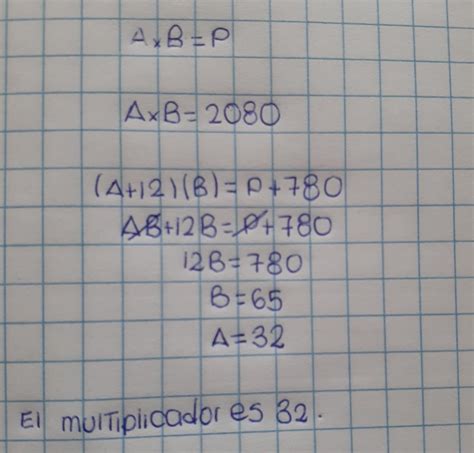 A×B=P
A×B=2080
(A+12)(B)=P+780
AB+12B=P+780
12B=780
B=65
A=32
El multiplicador es 32.